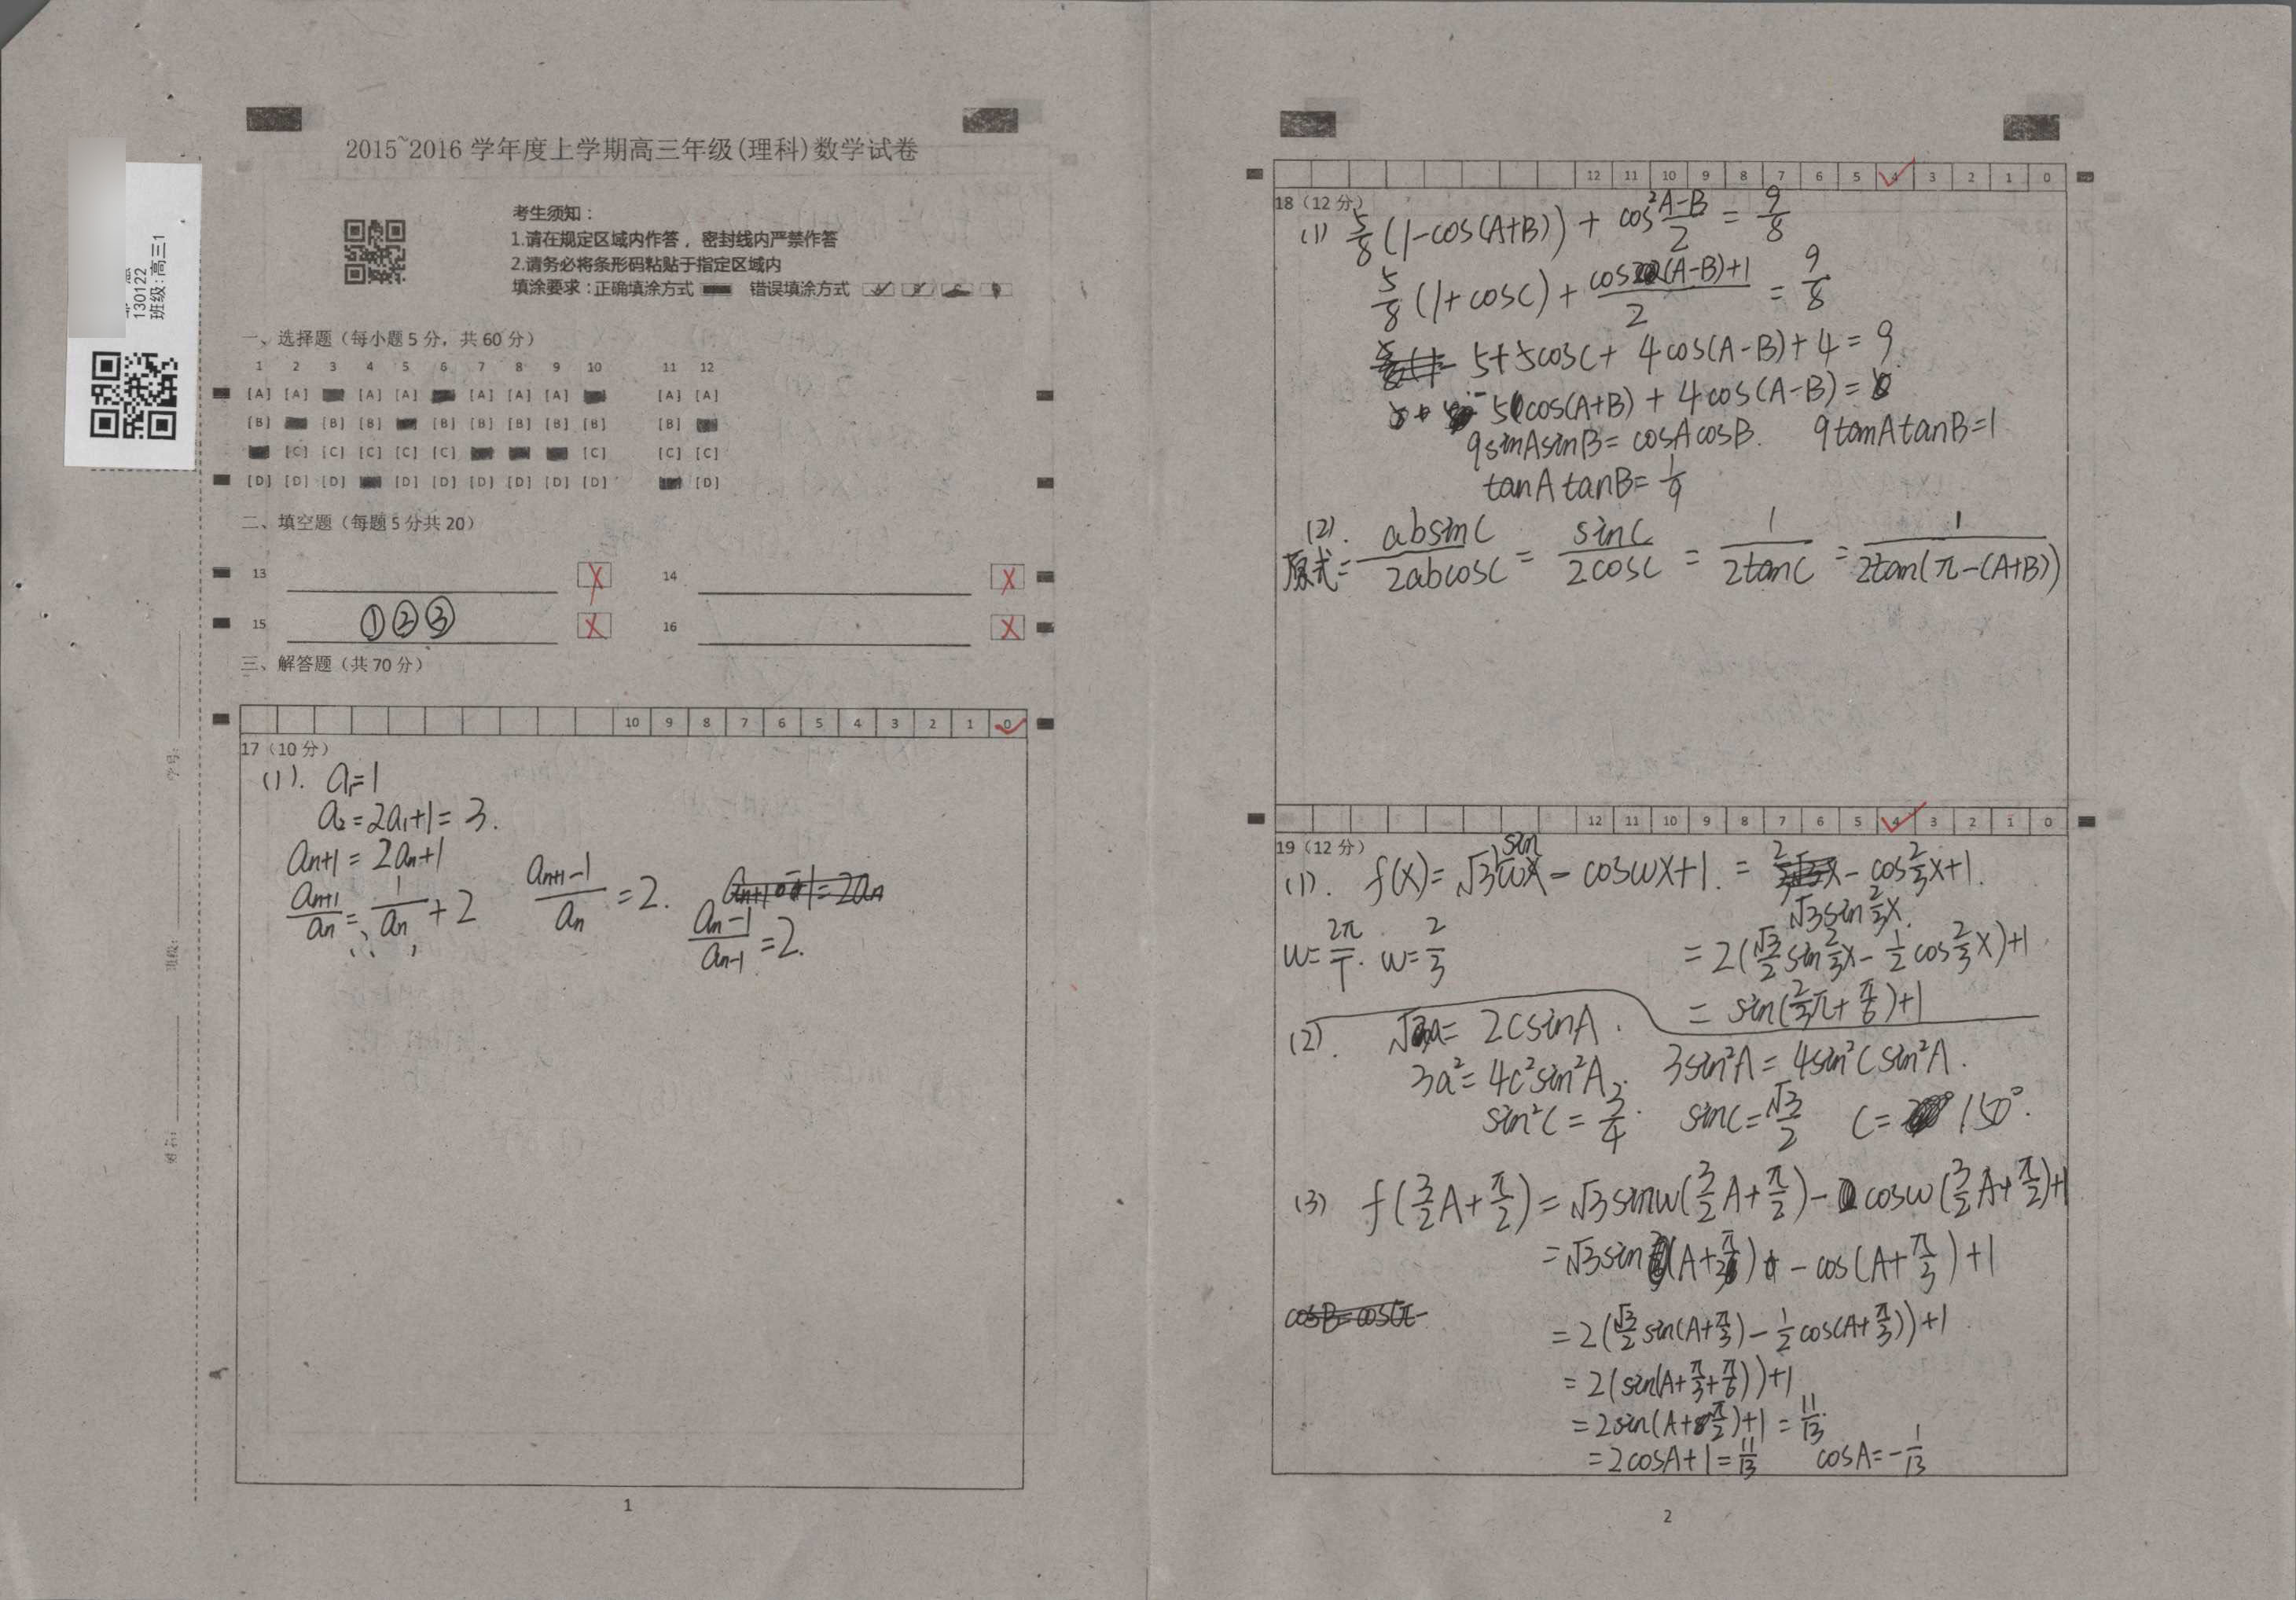 2015~2016 学年度上学期高三年级(理科)数学试卷
考生须知：
1.请在规定区域内作答，密封线内严禁作答
2.请务必将条形码粘贴于指定区域内
填涂要求：正确填涂方式 错误填涂方式
130122
班级:高三1
一、选择题（每小题5分，共60分）
1 2 3 4 5 6 7 8 9 10 11 12
[A] [A] [A] [A] [A] [A] [A] [A] [A]
[B] [B] [B] [B] [B] [B] [B] [B] [B]
[C] [C] [C] [C] [C] [C] [C] [C]
[D] [D] [D] [D] [D] [D] [D] [D] [D] [D]
二、填空题（每题5分共20）
13 X 14 X
15 ①②③ X 16 X
三、解答题（共70分）
10 9 8 7 6 5 4 3 2 1 0
17（10分）
(1). a₁=1
a₂=2a₁+1=3.
aₙ₊₁=2aₙ+1
aₙ₊₁/aₙ=1/aₙ+2 (aₙ₊₁-1)/aₙ=2.
(aₙ-1)/aₙ₋₁=2.
学号:
班级:
姓名:
1
12 11 10 9 8 7 6 5 4 3 2 1 0
18（12分）
(1) 5/8(1-cos(A+B))+cos²(A-B)/2=9/8
5/8(1+cosC)+(cos(A-B)+1)/2=9/8
5+5cosC+4cos(A-B)+4=9
-5cos(A+B)+4cos(A-B)=0
9sinAsinB=cosAcosB. 9tanAtanB=1
tanAtanB=1/9
(2).
原式=absinC/2abcosC=sinC/2cosC=1/2tanC=1/2tan(π-(A+B))
12 11 10 9 8 7 6 5 4 3 2 1 0
19（12分）
(1). f(x)=√3sinωx-cosωx+1.=√3sin2/3x-cos2/3x+1.
ω=2π/T. ω=2/3
=2(√3/2sin2/3x-1/2cos2/3x)+1
=sin(2/3π+π/6)+1
(2). √3a=2csinA.
3a²=4c²sin²A. 3sin²A=4sin²Csin²A.
sin²C=3/4. sinC=√3/2 C=150°.
(3) f(3/2A+π/2)=√3sinω(3/2A+π/2)-cosω(3/2A+π/2)+1
=√3sin(A+π/3)-cos(A+π/3)+1
cosB=cos(π-
=2(√3/2sin(A+π/3)-1/2cos(A+π/3))+1
=2(sin(A+π/3+π/6))+1
=2sin(A+π/2)+1=11/13
=2cosA+1=11/13 cosA=-1/13
2